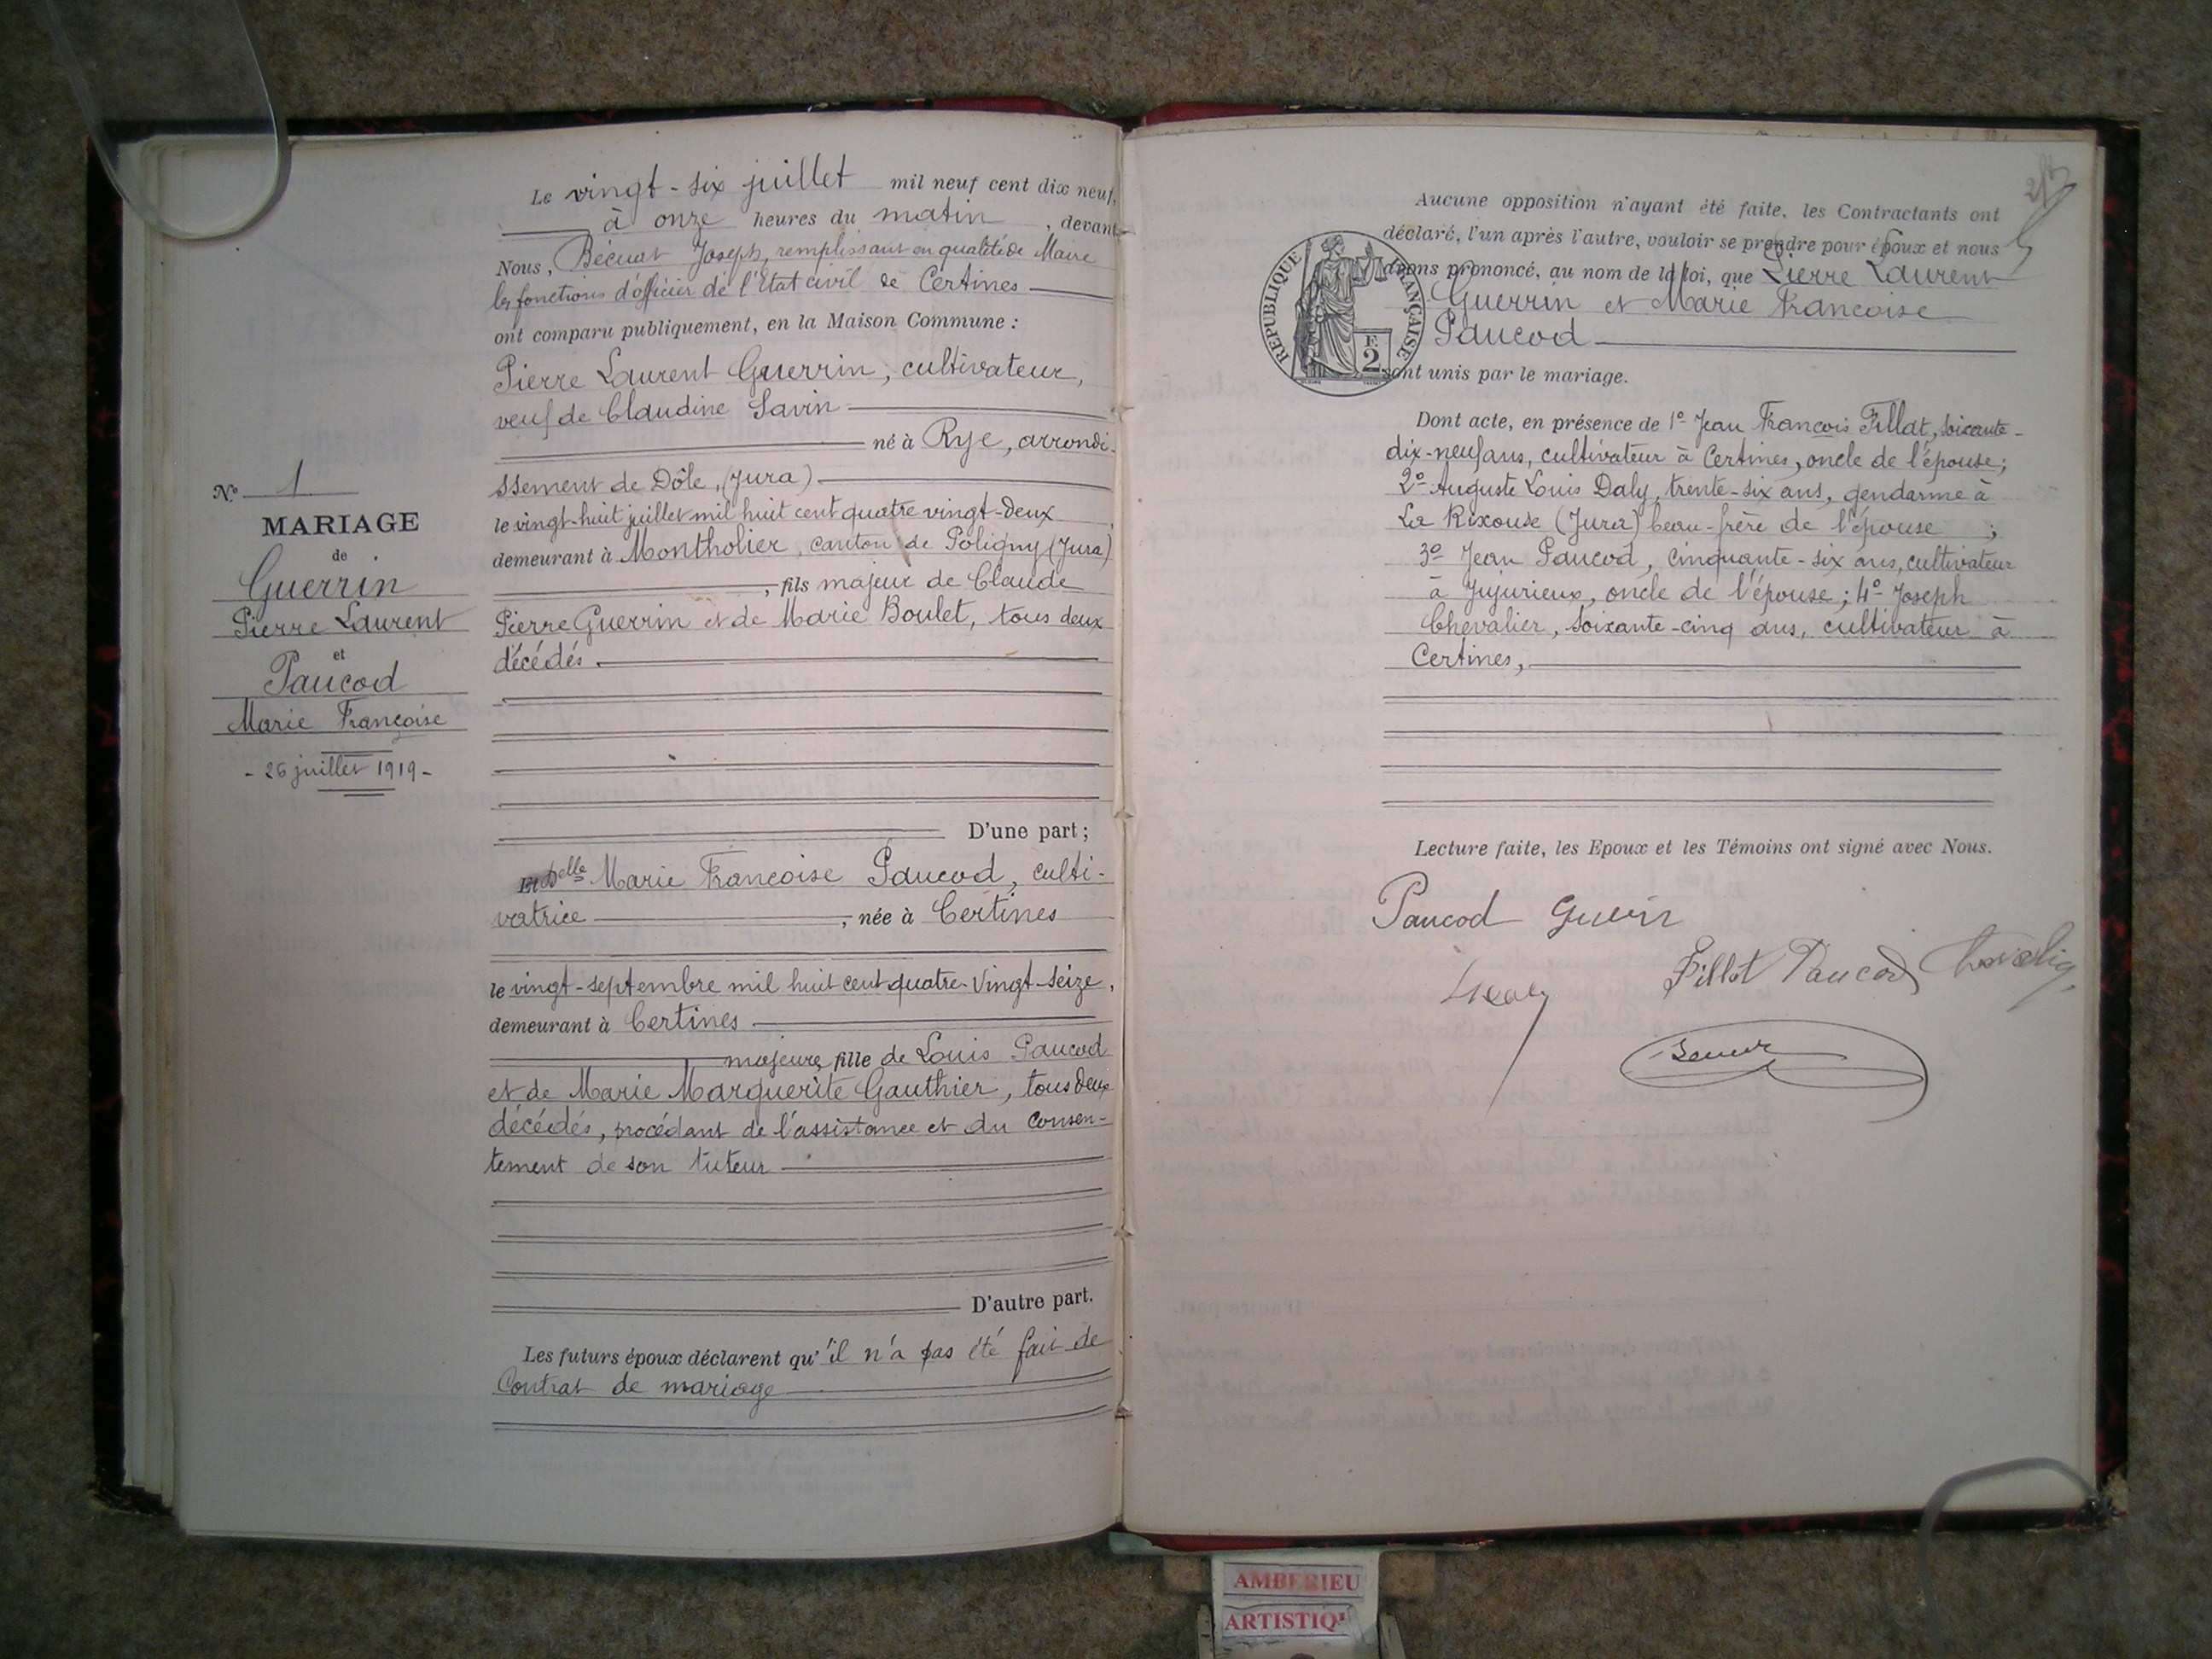 N° 1
MARIAGE
de
Guerrin
Pierre Laurent
et
Paucod
Marie Françoise
- 26 juillet 1919 -
Le vingt-six juillet mil neuf cent dix neuf,
à onze heures du matin, devant
Nous, Joseph, remplissant en qualité de Maire
les fonctions d'officier de l'Etat civil de Certines
ont comparu publiquement, en la Maison Commune :
Pierre Laurent Guerrin, cultivateur,
veuf de Claudine Savin
né à Rye, arrondi-
ssement de Dôle, (Jura)
le vingt-huit juillet mil huit cent quatre vingt-deux
demeurant à Montholier, canton de Poligny (Jura)
, fils majeur de Claude
Pierre Guerrin et de Marie Boulet, tous deux
décédés.
D'une part ;
Et Delle Marie Francoise Paucod, culti-
vatrice, née à Certines
le vingt-septembre mil huit cent quatre-vingt-seize,
demeurant à Certines
majeure, fille de Louis Paucod
et de Marie Marguerite Gauthier, tous deux
décédés, procédant de l'assistance et du consen-
tement de son tuteur
D'autre part.
Les futurs époux déclarent qu'il n'a pas été fait de
Contrat de mariage
Aucune opposition n'ayant été faite, les Contractants ont
déclaré, l'un après l'autre, vouloir se prendre pour époux et nous
avons prononcé, au nom de la loi, que Pierre Laurent
Guerrin et Marie Francoise
Paucod
sont unis par le mariage.
REPUBLIQUE FRANÇAISE
F
2
Dont acte, en présence de 1° Jean François Fillot, soixante-
dix-neuf ans, cultivateur à Certines, oncle de l'épouse;
2° Auguste Louis Daly, trente-six ans, gendarme à
La Rixouse (Jura) beau-frère de l'épouse ;
3° Jean Paucod, cinquante-six ans, cultivateur
à Jujurieux, oncle de l'épouse; 4° Joseph
Chevalier, soixante-cinq ans, cultivateur à
Certines,
Lecture faite, les Epoux et les Témoins ont signé avec Nous.
Paucod Guerin
Fillot Paucod Chevalier
AMBERIEU
ARTISTIQ